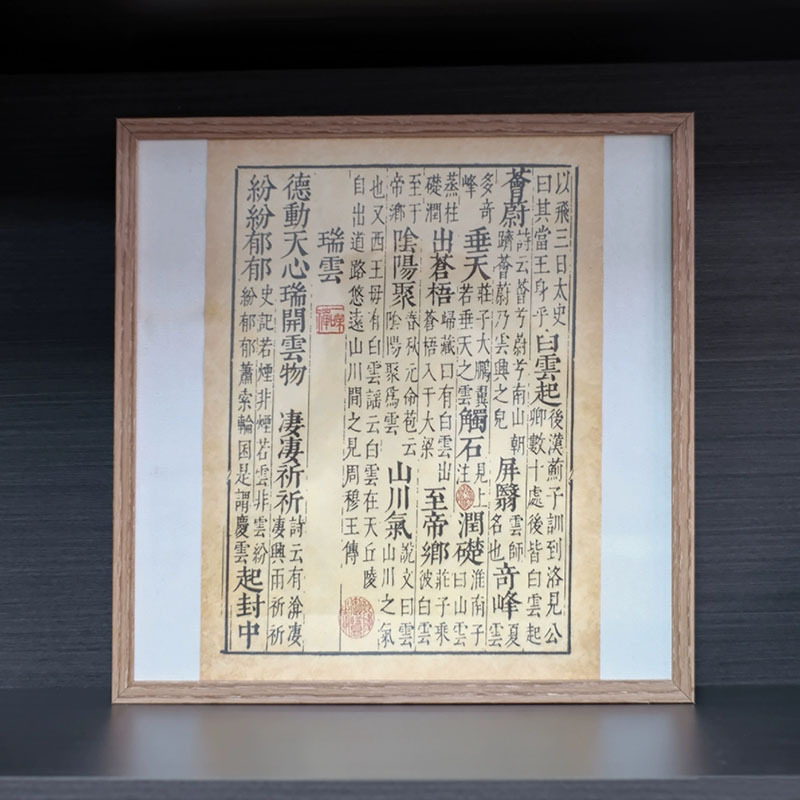 以飛三日太史曰其當王身乎白雲起後漢薊子訓到洛見公卿數十處後皆白雲起
薈蔚詩云薈兮蔚兮南山朝隮薈蔚乃雲興之皃屏翳雲師名也奇峰夏雲
多奇峰垂天莊子大鵬翼若垂天之雲觸石見上注潤礎淮南子曰山雲
蒸柱礎潤出蒼梧歸藏曰有白雲出蒼梧入于大梁至帝鄉莊子乘彼白雲
至于帝鄉陰陽聚春秋元命苞云陰陽聚爲雲山川氣說文曰雲山川之氣
也又西王母有白雲謡云白雲在天丘陵自出道路悠遠山川間之見周穆王傳
瑞雲
德動天心瑞開雲物 淒淒祈祈詩云有渰淒淒興雨祈祈
紛紛郁郁史記若煙非煙若雲非雲紛紛郁郁蕭索輪囷是謂慶雲起封中